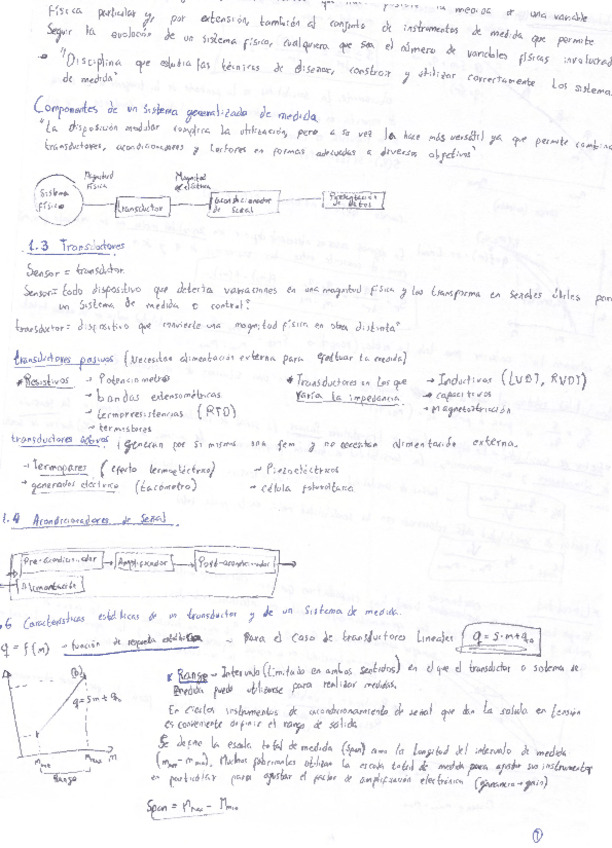 física particular y, por extensión, también al conjunto de instrumentos de medida que permite
seguir la evolución de un sistema físico, cualquiera que sea el número de variables físicas involucrad
"Disciplina que estudia las técnicas de diseñar, construir y utilizar correctamente los sistemas
de medida"
Componentes de un sistema generalizado de medida
"La disposición modular complica la utilización, pero a su vez la hace más versátil ya que permite combina
transductores, acondicionadores y lectores en formas adecuadas a diversos objetivos"
Magnitud Física
Magnitud eléctrica
Sistema Físico
transductor
acondicionador de Señal
Presentación de datos
1.3 Transductores
Sensor = transductor
Sensor= todo dispositivo que detecta variaciones en una magnitud física y las transforma en señales útiles para
un sistema de medida o control.
transductor= dispositivo que convierte una magnitud física en otra distinta"
transductores pasivos (Necesitan alimentación externa para efectuar la medida)
* Resistivos → Potenciómetro
→ bandas extensométricas
→ termorresistencias (RTD)
→ termistores
* Transductores en los que varía la impedancia → Inductivos (LVDT, RVDT)
→ capacitivos
→ Magnetostricción
transductores activos: Generan por sí mismos una fem y no necesitan alimentación externa.
→ Termopares (efecto termoeléctrico) → Piezoeléctricos
→ generador eléctrico (tacómetro) → célula fotovoltaica
1.4 Acondicionadores de Señal.
Pre-acondicionador
Amplificador
Post-acondicionador
Alimentación
6 Características estáticas de un transductor y de un Sistema de medida.
q = f(m) → función de respuesta estática → Para el caso de transductores Lineales q = s·m+q₀
q=sm+q₀
m min
m max
m
Rango
* Rango → Intervalo (Limitado en ambos sentidos) en el que el transductor o sistema de
medida puede utilizarse para realizar medidas.
En ciertos instrumentos de acondicionamiento de señal que dan la salida en tensión
es conveniente definir el rango de salida
Se define la escala total de medida (Span) como la longitud del intervalo de medida
(mmax - mmin). Muchos profesionales utilizan la escala total de medida para ajustar sus instrumentos
en particular para ajustar el factor de amplificación electrónica (ganancia → gain)
Span = Mmax - Mmin
1